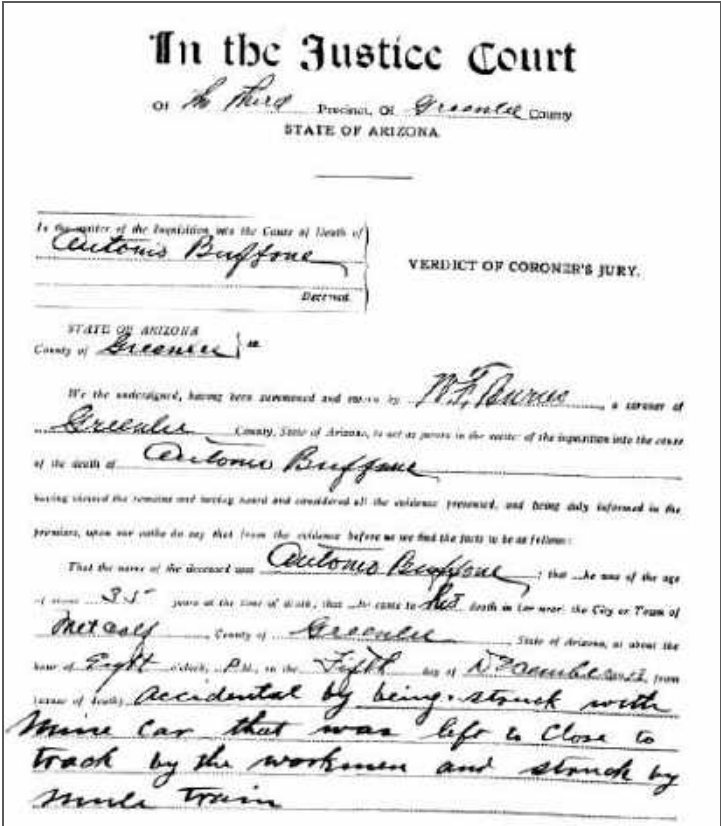 In the Justice Court
Of the Third Precinct, Of Greenlee County
STATE OF ARIZONA
In the matter of the Inquisition into the Cause of Death of
Antonio Buffone
Deceased.
VERDICT OF CORONER'S JURY.
STATE OF ARIZONA
County of Greenlee } ss
We the undersigned, having been summoned and sworn by W. F. Burns, a coroner of
Greenlee County, State of Arizona, to act as jurors in the matter of the inquisition into the cause
of the death of Antonio Buffone
having viewed the remains and having heard and considered all the evidence presented, and being duly informed in the
premises, upon our oaths do say that from the evidence before us we find the facts to be as follows:
That the name of the deceased was Antonio Buffone; that he was of the age
of about 35 years at the time of death; that he came to his death in (or near) the City or Town of
Metcalf, County of Greenlee, State of Arizona, at about the
hour of Eight o'clock, P.M., on the Fifth day of December from
(cause of death) Accidental by being struck with
mine car that was left to Close to
track by the workmen and struck by
mule train